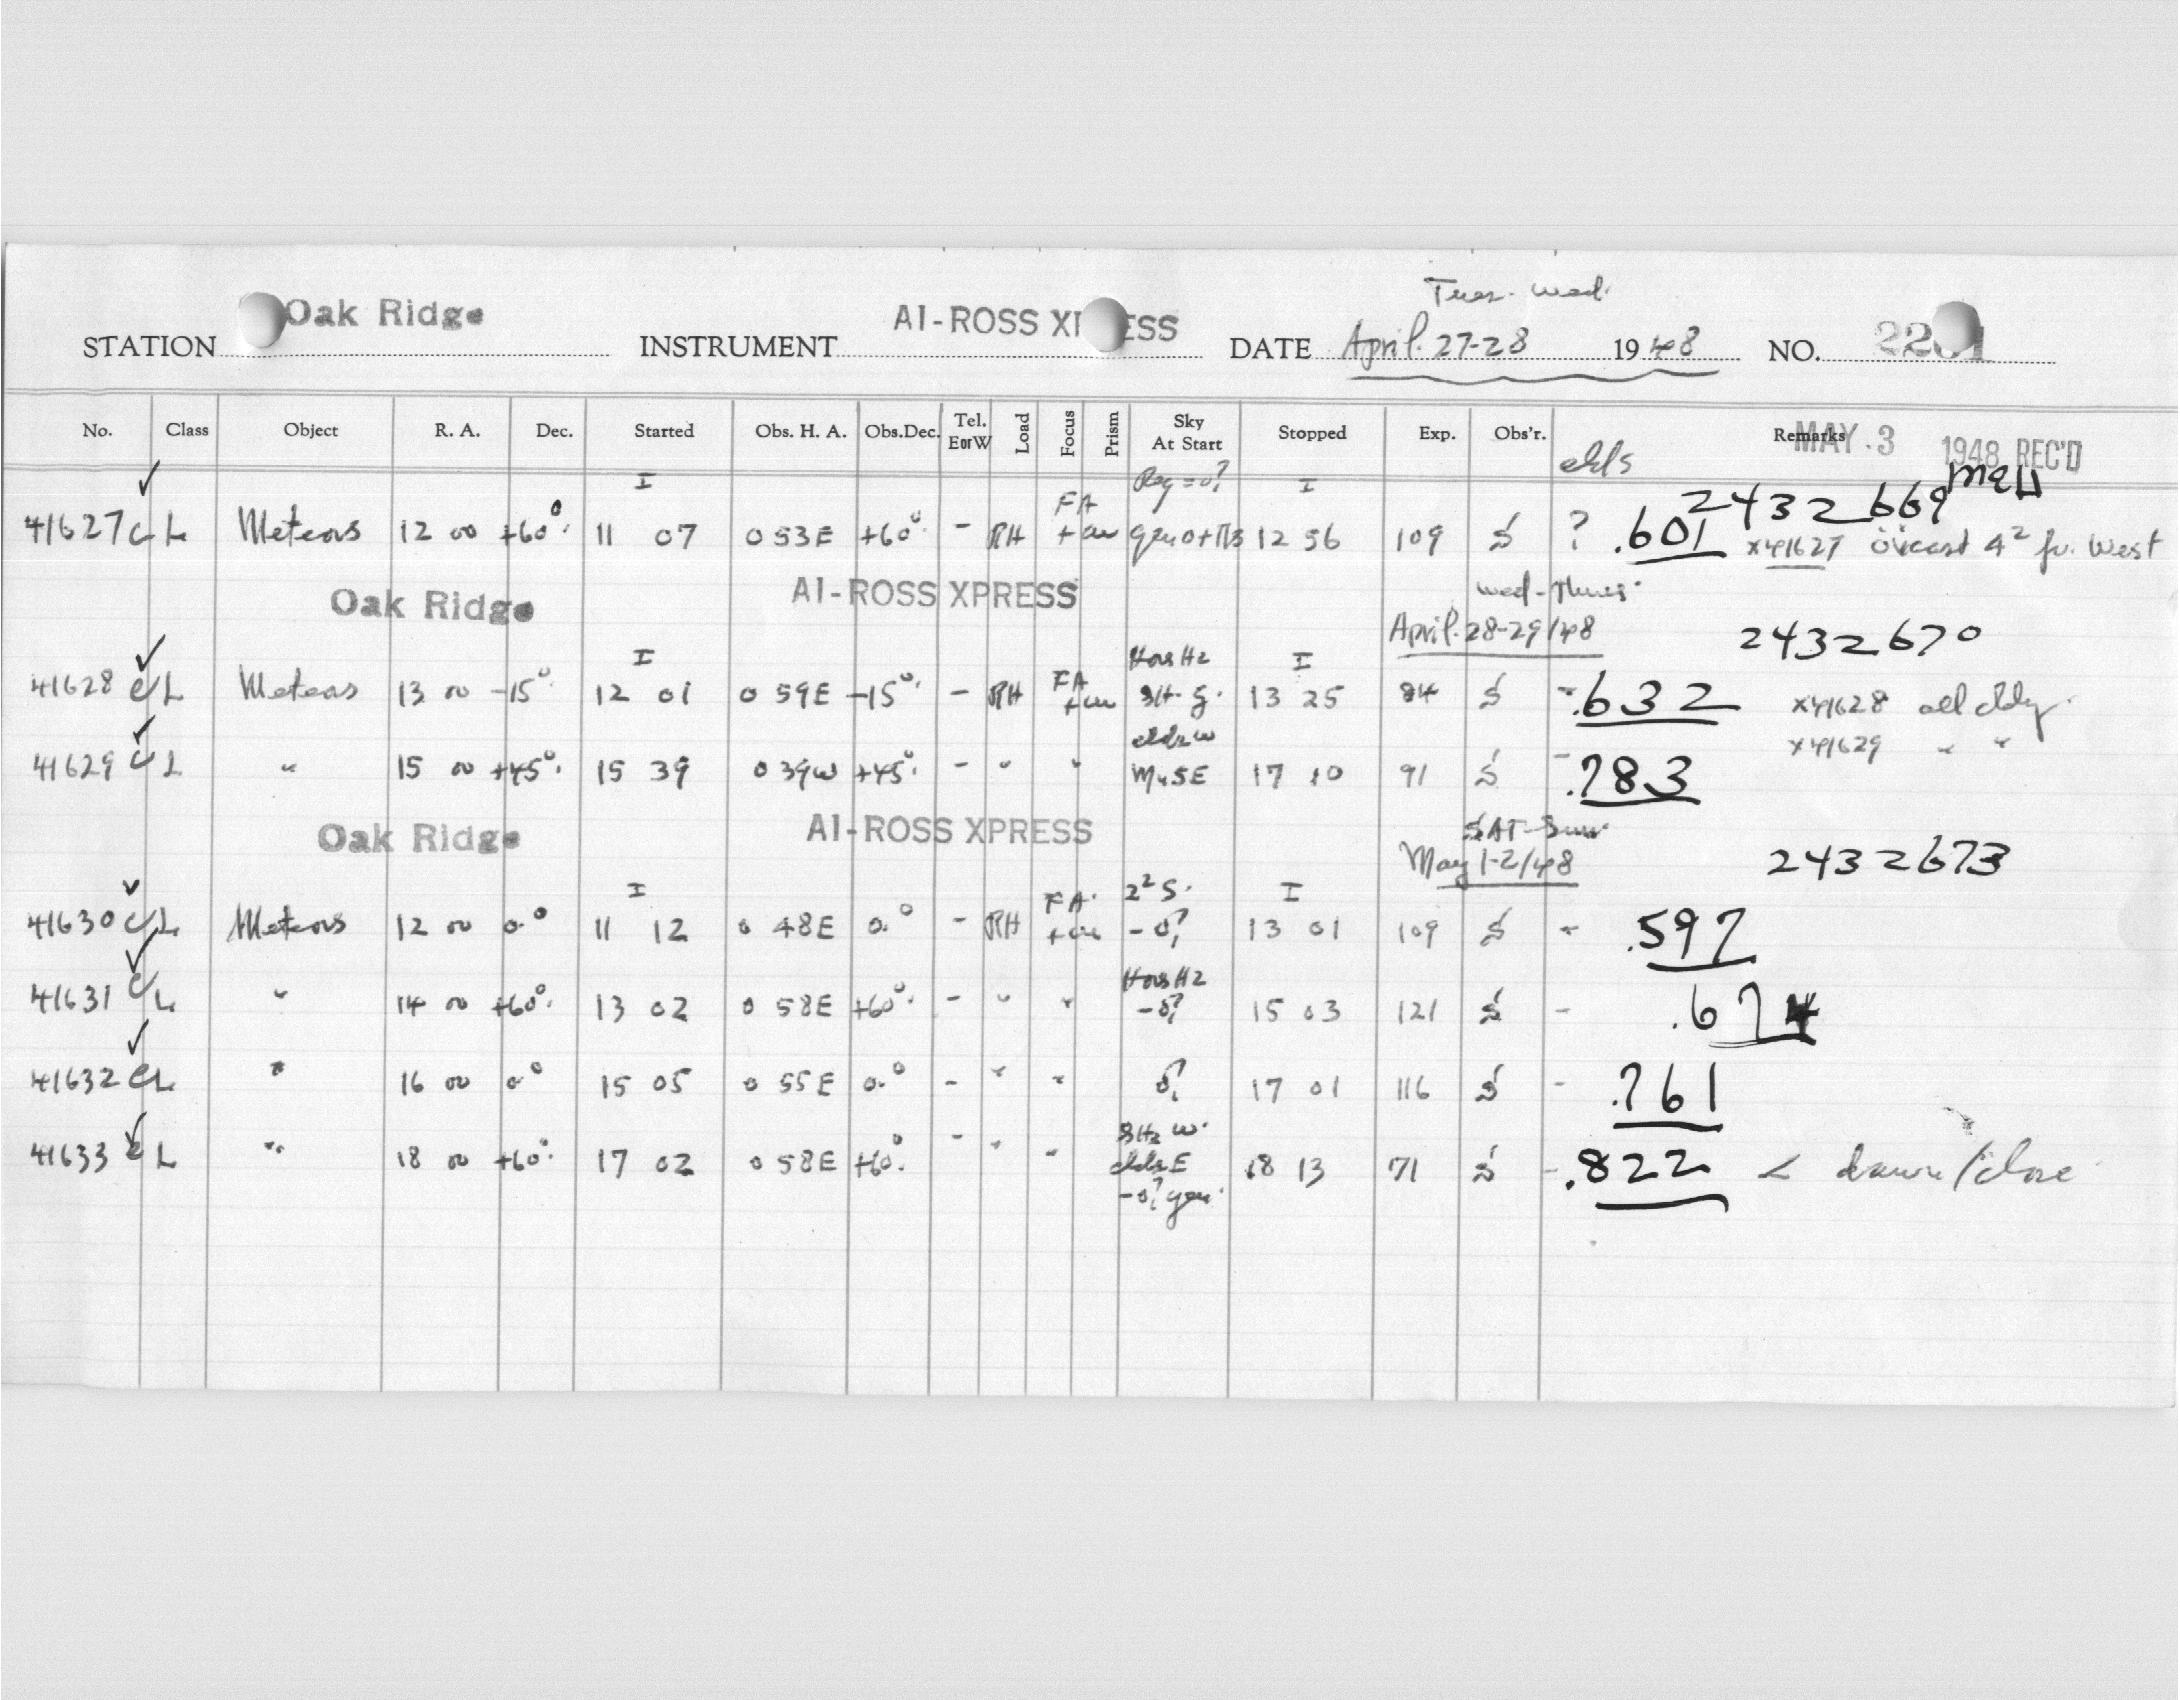 Tues. Wed.
STATION Oak Ridge INSTRUMENT AI-ROSS XPRESS DATE April. 27-28 1948 NO. 22
No. Class Object R. A. Dec. Started Obs. H. A. Obs.Dec. Tel. E or W Load Focus Prism Sky At Start Stopped Exp. Obs'r. Remarks
MAY. 3 1948 REC'D
I I
41627 c L Meteors 12 00 +60° 11 07 0 53E +60° - RH FA 12 56 109 ? .601 2432669 x41627 4² West
Oak Ridge AI-ROSS XPRESS Wed-Thurs.
April. 28-29/48 2432670
I I
41628 c L Meteors 13 00 -15° 12 01 0 59E -15° - RH FA 13 25 84 - .632 x41628 all cldy.
41629 c L " 15 00 +45° 15 39 0 39W +45° - " " 17 10 91 - .783 x41629 " "
Oak Ridge AI-ROSS XPRESS SAT-Sun.
May 1-2/48 2432673
I I
41630 c L Meteors 12 00 0° 11 12 0 48E 0° - RH FA 2² S. 13 01 109 - .597
41631 c L " 14 00 +60° 13 02 0 58E +60° - " " 15 03 121 - .674
41632 c L " 16 00 0° 15 05 0 55E 0° - " " 17 01 116 - .761
41633 c L " 18 00 +60° 17 02 0 58E +60° - " " 18 13 71 - .822 < dawn/close